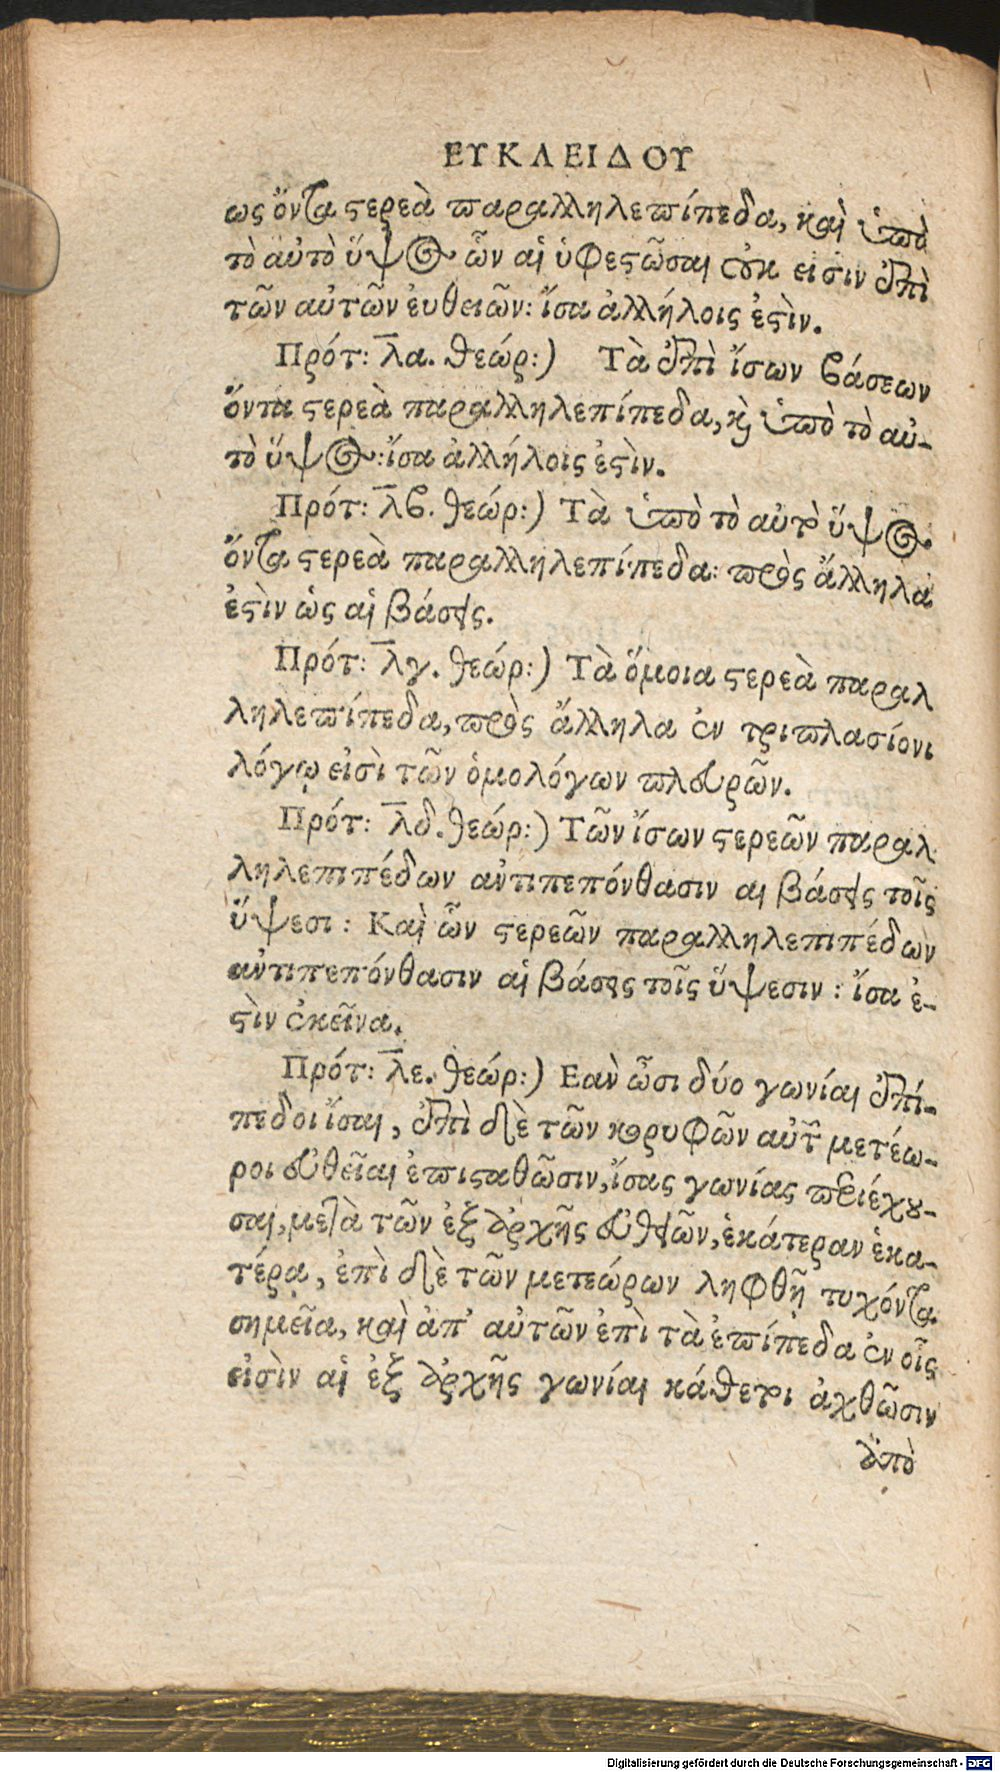 ΕΥΚΛΕΙΔΟΥ
ως ὄντα ϛερεὰ παραλληλεπίπεδα, καὶ ὑπὸ
τὸ αὐτὸ ὕψος ὧν αἱ ὑφεϛῶσαι οὐκ εἰσιν ἐπὶ
τῶν αὐτῶν ἐυθειῶν: ἴσα ἀλλήλοις ἐϛὶν.
Πρότ: λα. θεώρ:) Τὰ ἐπὶ ἴσων βάσεων
ὄντα ϛερεὰ παραλληλεπίπεδα, κỳ ὑπὸ τὸ αὐ-
τὸ ὕψος: ἴσα ἀλλήλοις ἐϛὶν.
Πρότ: λβ. θεώρ:) Τὰ ὑπὸ τὸ αὐτὸ ὕψος
ὄντα ϛερεὰ παραλληλεπίπεδα: πρὸς ἄλληλά
ἐϛὶν ὡς αἱ βάσεις.
Πρότ: λγ. θεώρ:) Τὰ ὅμοια ϛερεὰ παραλ
ληλεπίπεδα, πρὸς ἄλληλα ἐν τριπλασίονι
λόγῳ εἰσὶ τῶν ὁμολόγων πλευρῶν.
Πρότ: λδ. θεώρ:) Τῶν ἴσων ϛερεῶν παραλ
ληλεπιπέδων αὐτιπεπόνθασιν αι βάσεις τοῖς
ὕψεσι: Καὶ ὧν ϛερεῶν παραλληλεπιπέδων
αὐτιπεπόνθασιν αἱ βάσεις τοῖς ὕψεσιν: ἴσα ἐ-
ϛὶν ἐκεῖνα.
Πρότ: λε. θεώρ:) Εαν ὦσι δύο γωνίαι ἐπί-
πεδοι ἴσαι, ἐπὶ δὲ τῶν κορυφῶν αὐτῶν μετέω-
ροι εὐθεῖαι ἐπιϛαθῶσιν, ἴσας γωνίας περιέχου-
σαι, μετὰ τῶν ἐξ ἀρχῆς εὐθειῶν, ἑκάτεραν ἑκα-
τέρᾳ, ἐπὶ δὲ τῶν μετεώρων ληφθῇ τυχόντα
σημεῖα, καὶ ἀπ' αὐτῶν ἐπὶ τὰ ἐπίπεδα ἐν οἷς
εἰσὶν αἱ ἐξ ἀρχῆς γωνίαι κάθετοι ἀχθῶσιν
ἀπὸ
Digitalisierung gefördert durch die Deutsche Forschungsgemeinschaft - DFG